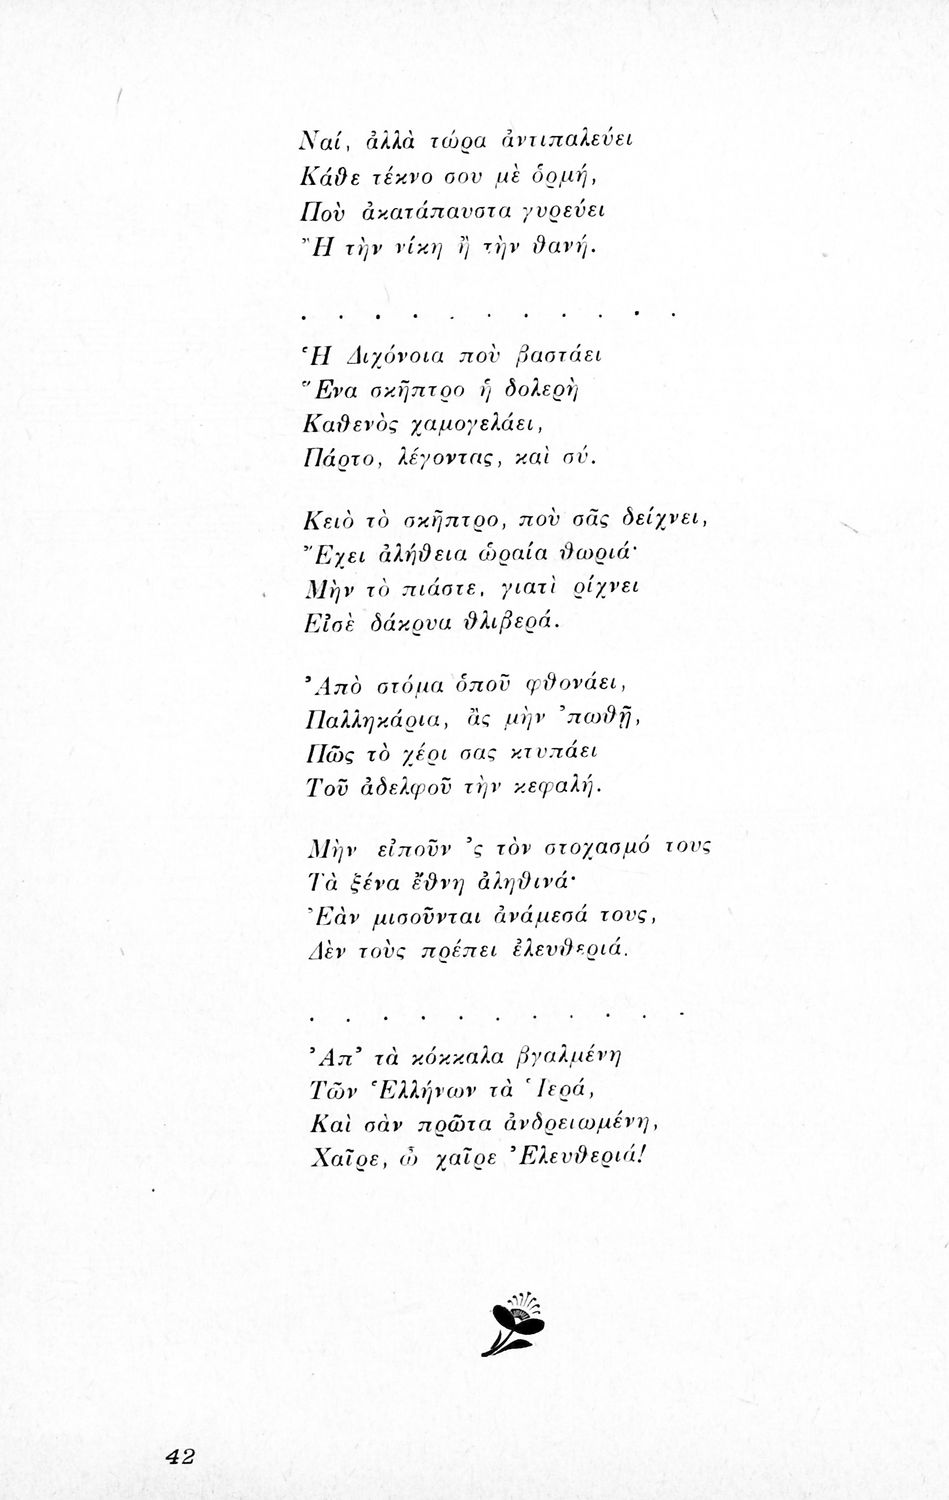 Ναί, ἀλλὰ τώρα ἀντιπαλεύει
Κάθε τέκνο σου μὲ ὁρμή,
Ποὺ ἀκατάπαυστα γυρεύει
Ἢ τὴν νίκη ἢ τὴν θανή.
. . . . . . . . . . .
Ἡ Διχόνοια ποὺ βαστάει
Ἕνα σκῆπτρο ἡ δολερὴ
Καθενὸς χαμογελάει,
Πάρτο, λέγοντας, καὶ σύ.
Κειὸ τὸ σκῆπτρο, ποὺ σᾶς δείχνει,
Ἔχει ἀλήθεια ὡραία θωριά·
Μὴν τὸ πιάστε, γιατὶ ρίχνει
Εἰσὲ δάκρυα θλιβερά.
Ἀπὸ στόμα ὁποῦ φθονάει,
Παλληκάρια, ἂς μὴν 'πωθῇ,
Πῶς τὸ χέρι σας κτυπάει
Τοῦ ἀδελφοῦ τὴν κεφαλή.
Μὴν εἰποῦν 'ς τὸν στοχασμό τους
Τὰ ξένα ἔθνη ἀληθινά·
Ἐὰν μισοῦνται ἀνάμεσά τους,
Δὲν τοὺς πρέπει ἐλευθεριά.
. . . . . . . . . . .
Ἀπ' τὰ κόκκαλα βγαλμένη
Τῶν Ἑλλήνων τὰ Ἱερά,
Καὶ σὰν πρῶτα ἀνδρειωμένη,
Χαῖρε, ὦ χαῖρε Ἐλευθεριά!
42